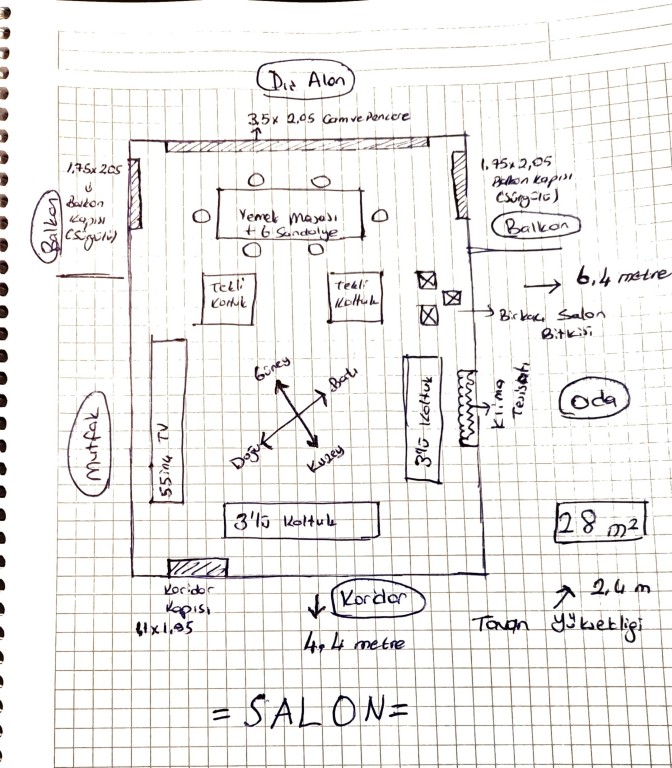 Dış Alan
3.5 x 2,05 Cam ve Pencere
1.75x205
Balkon
Kapısı
(Sürgülü)
Balkon
1.75 x 2,05
Balkon Kapısı
(Sürgülü)
Balkon
Yemek Masası
+ 6 Sandalye
Tekli
Koltuk
Tekli
Koltuk
6,4 metre
Birkaç Salon
Bitkisi
Güney
Batı
Doğu
Kuzey
55inç TV
3'lü Koltuk
Klima
Tesisatı
Oda
Mutfak
3'lü Koltuk
28 m²
Koridor
Kapısı
1,1x1,95
Koridor
4,4 metre
2,4 m
Tavan Yüksekliği
= SALON=